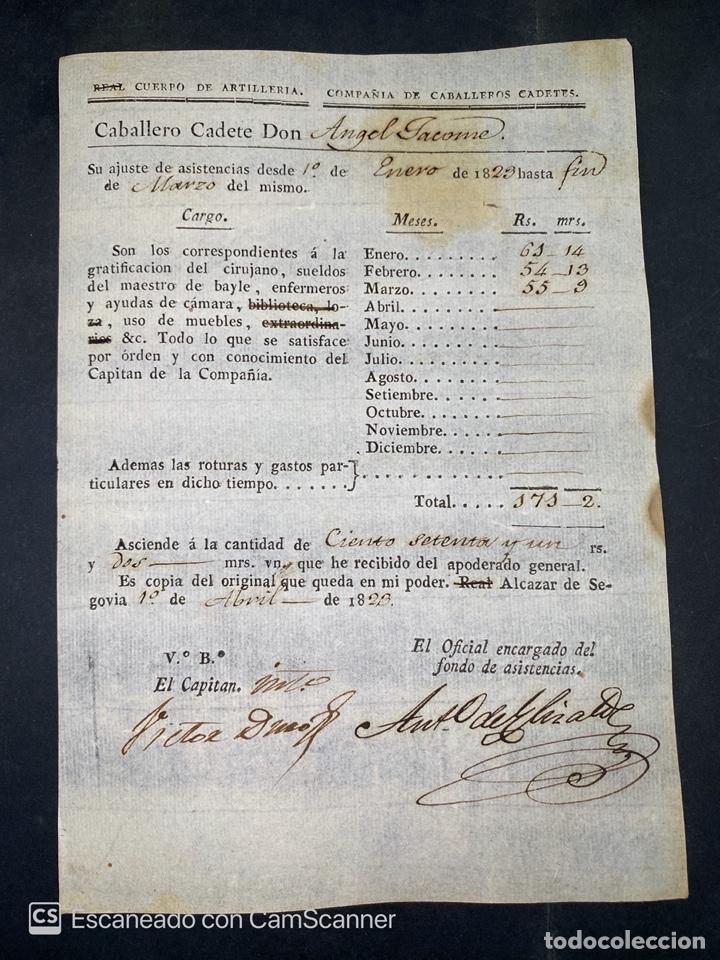 REAL CUERPO DE ARTILLERIA. COMPAÑIA DE CABALLEROS CADETES.
Caballero Cadete Don Angel Jacome.
Su ajuste de asistencias desde 1º de Enero de 1823 hasta fin
de Marzo del mismo.
Cargo.
Son los correspondientes á la
gratificacion del cirujano, sueldos
del maestro de bayle, enfermeros
y ayudas de cámara, biblioteca, lo-
za, uso de muebles, extraordina-
rios &c. Todo lo que se satisface
por órden y con conocimiento del
Capitan de la Compañía.
Meses. Rs. mrs.
Enero. . . . . . . . 61 - 14
Febrero. . . . . . . 54 - 13
Marzo. . . . . . . . 55 - 9
Abril. . . . . . . .
Mayo. . . . . . . .
Junio. . . . . . . .
Julio. . . . . . . .
Agosto. . . . . . .
Setiembre. . . . . .
Octubre. . . . . . .
Noviembre. . . . . .
Diciembre. . . . . .
Ademas las roturas y gastos par-
ticulares en dicho tiempo. . . . . . .
Total. . . . . 171 - 2.
Asciende á la cantidad de Ciento setenta y un rs.
y dos mrs. vn. que he recibido del apoderado general.
Es copia del original que queda en mi poder. Real Alcazar de Se-
govia 1º de Abril de 1823.
V.º B.º
El Capitan. intº
El Oficial encargado del
fondo de asistencias.
Victor
Antº de Elizalde
CS Escaneado con CamScanner
todocoleccion